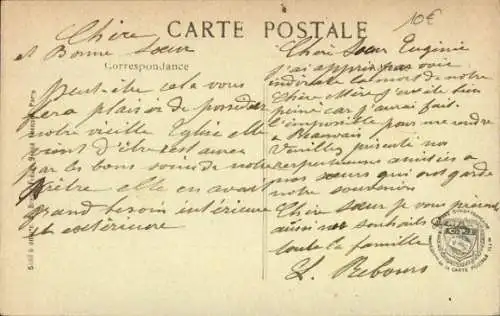 10€
CARTE POSTALE
Correspondance
Chère
et Bonne Sœur
Peut-être cela vous
fera plaisir de posséder
notre vieille Eglise elle
vient d'être restaurée
par les bons soins de notre
Prêtre elle en avait
grand besoin intérieure
et extérieure
Chère Sœur Eugénie
j'ai appris par voie
indirecte la mort de notre
Chère Mère j'ai été bien
peiné car j'aurai fait
l'impossible pour me rendre
à
Veuillez présenter nos
respectueuses amitiés à
nos sœurs qui ont gardé
notre souvenir
Chère Sœur je vous présente
aussi nos souhaits
toute la famille
L. Rebours